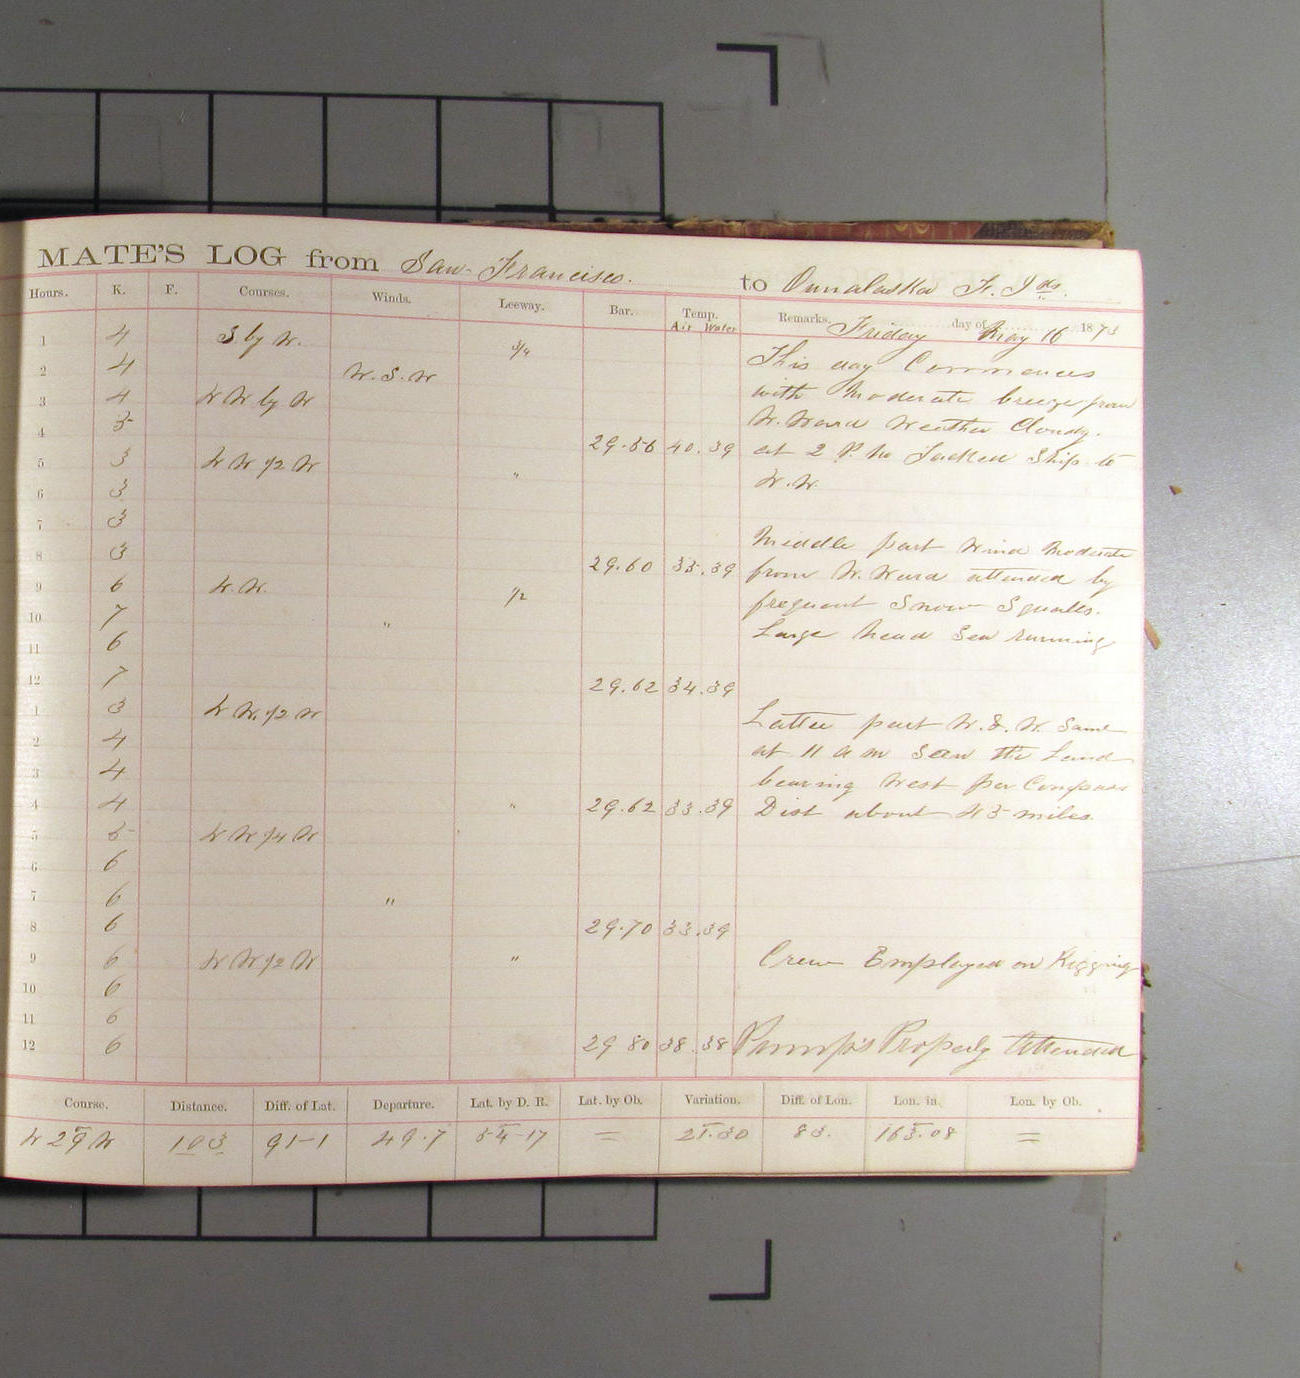 MATE'S LOG from San Francisco. to Ounalaska F. Ids.
Hours. K. F. Courses. Winds. Leeway. Bar. Temp. Remarks, Friday day of May 16 1873
Air Water
1 4 S by W. 3/4
2 4 W.S.W This day Commences
3 4 N W by N with Moderate breeze from
4 3 W.Ward Weather Cloudy.
29.56 40.39 at 2 P.M Tacked Ship to
5 3 N W 1/2 W
6 3 " N.W.
7 3
8 3 Middle part Wind Moderate
29.60 35.39 from W.Ward attended by
9 6 N.W. 1/2 frequent Snow Squalls.
10 7 "
11 6 Large head Sea running
12 7 29.62 34.39
1 3 N W. 1/2 W Latter part W. & W. Same
2 4 at 11 a m Saw the Land
3 4 bearing West per Compass
4 4 " 29.62 33.39 Dist about 45 miles.
5 5 N W 1/4 W
6 6
7 6 "
8 6 29.70 33.39
9 6 N W 1/2 W " Crew Employed on Rigging
10 6
11 6
12 6 29 80 38.38 Pump's Properly Attended
Course. Distance. Diff. of Lat. Departure. Lat. by D. R. Lat. by Ob. Variation. Diff. of Lon. Lon. in. Lon. by Ob.
N 29 W 103 91-1 49.7 54-17 = 21.30 83. 163.08 =